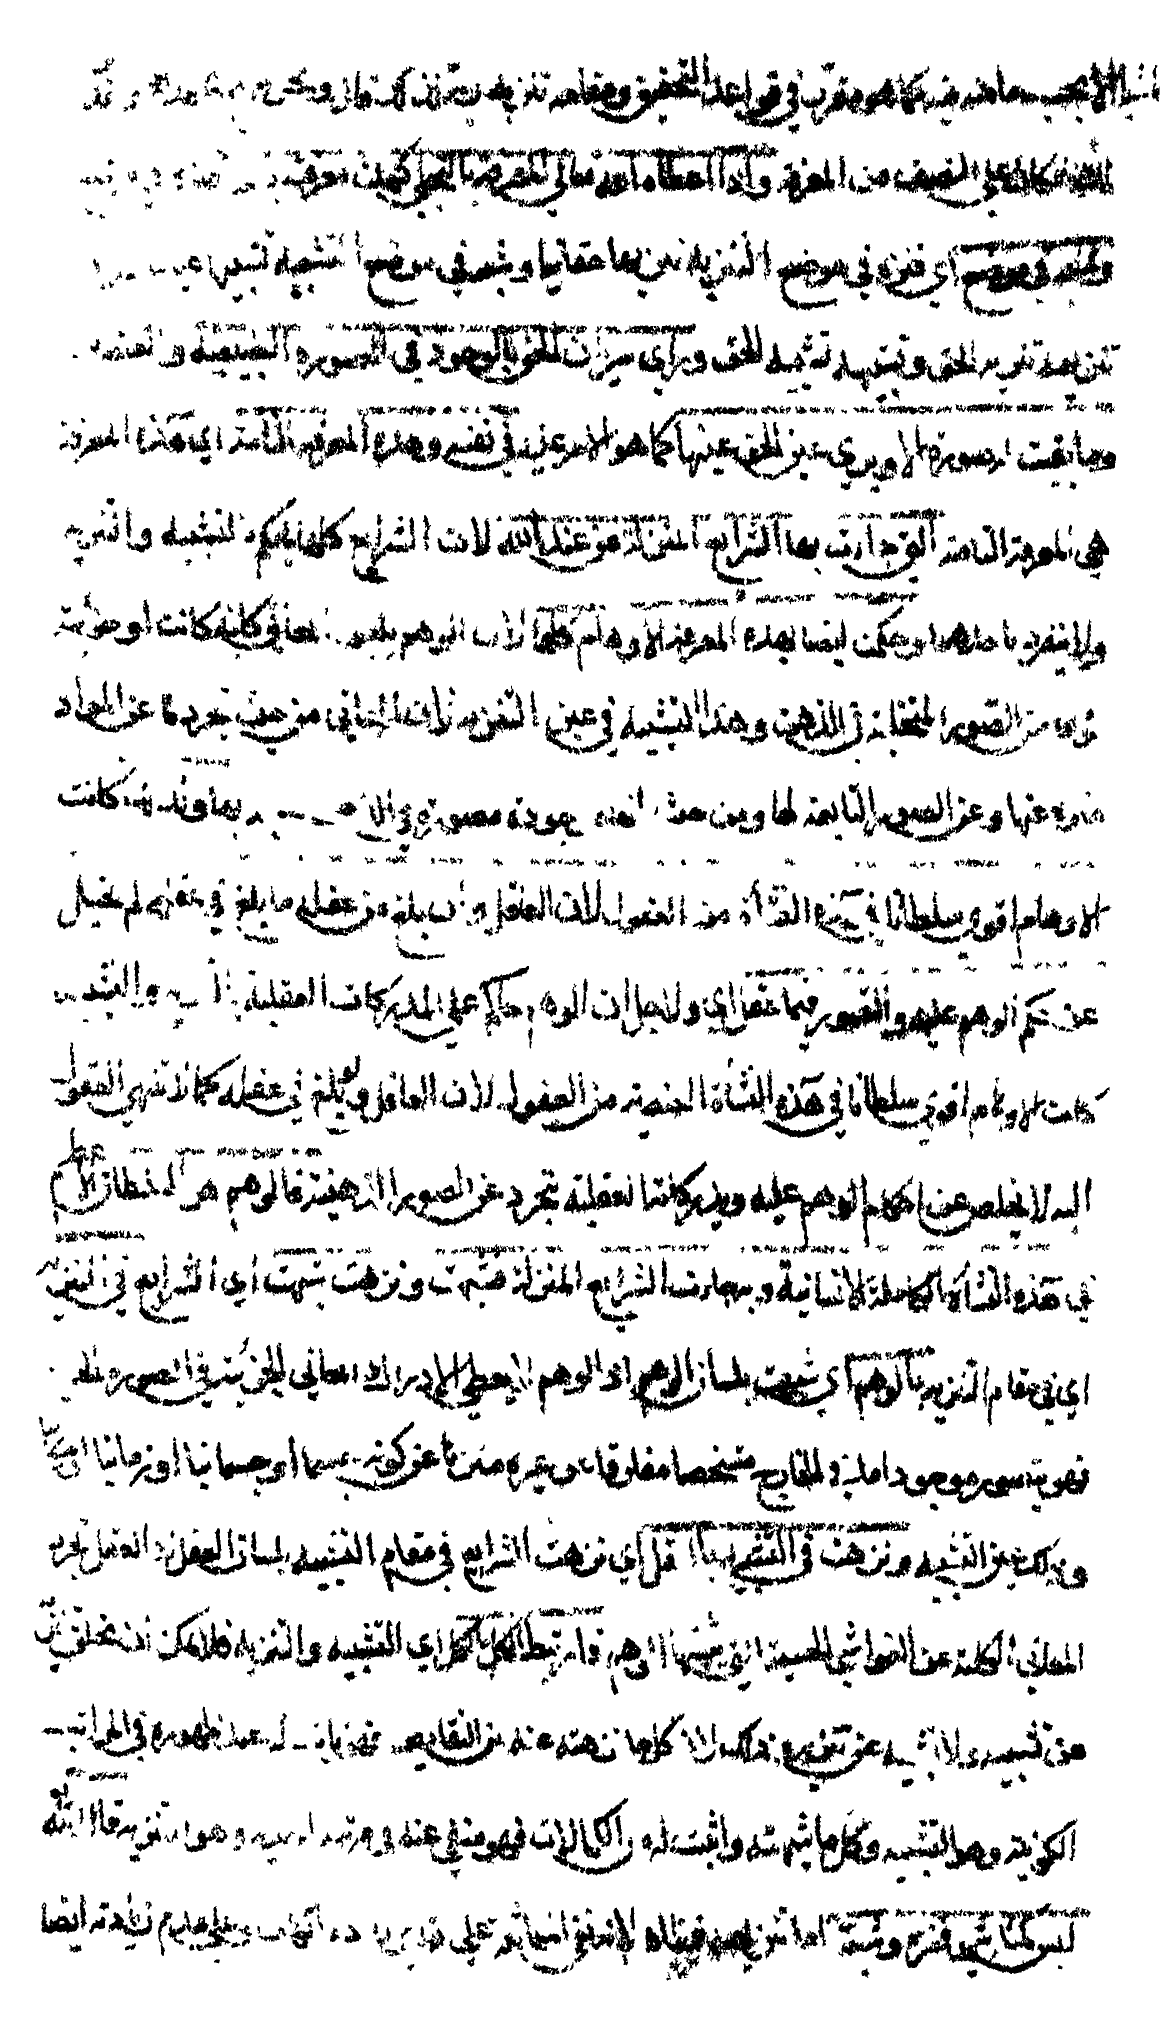 الا بحسب ما هو فيه كما هو مقرر في قواعد التحقيق ومقامه تنزيه
على النصف من المعرفة واذا اعطاه الله تعالى المعرفة بالتجلي كملت معرفته
وشبه في موضع اي فنزه في موضع التنزيه تنزيها حقانيا وشبه في موضع التشبيه تشبيها
تنزيهه تنزيه الحق وتشبيهه تشبيه الحق وراى سريان الحق بالوجود في الصورة الطبيعية والعنصرية
وما بقيت له صورة الا ويرى عين الحق عينها كما هو الامر عليه في نفسه وهذه المعرفة التامة اي هذه المعرفة
هي المعرفة التامة التي جاءت بها الشرايع المنزلة من عند الله لان الشرايع كلها يحكم بالتشبيه والتنزيه
ولا ينفرد باحدهما وحكمت ايضا بهذه المعرفة الاوهام كلها لان الوهم يلبس المعاني كلية كانت او جزئية
نوعا من الصور المتخيلة في الذهن وهذا التشبيه في عين التنزيه فان المعاني من حيث تجردها عن المواد
منزهة عنها وعن الصور التابعة لها ومن حيث انها موجودة مصورة ولذلك كانت
الاوهام اقوى سلطانا في هذه النشأة من العقول لان العاقل وان بلغ من عقله ما بلغ في عقله لم يخل
عن حكم الوهم عليه والتصور فيما عقل اي ولاجل ان الوهم حاكم على المدركات العقلية والتشبيه
كانت الاوهام اقوى سلطانا في هذه النشأة العنصرية من العقول لان العاقل ولو بلغ في عقله كما انتهى العقول
اليه لا يخلص عن احكام الوهم عليه ومدركاته العقلية تجرد عن الصور الذهنية فالوهم هو السلطان الاعظم
في هذه النشأة الكاملة الانسانية وبه جاءت الشرايع المنزلة فشبهت ونزهت شبهت اي الشرايع في التنزيه
اي في مقام التنزيه بالوهم اي شبهت بلسان الوهم اذ الوهم لا يعطي الا ادراك المعاني الجزئية في الصورة
فهو يتصور موجودا مشخصا مفارقا عن غيره منزها عن كونه جسما او جسمانيا او زمانيا
وذلك عين التشبيه ونزهت في التشبيه بالعقل اي نزهت الشرايع في مقام التشبيه بلسان العقل اذ العقل يجرد
المعاني الكلية عن الغواشي الحسية التي يثبتها الوهم فارتبط الكل بالكل اي التشبيه والتنزيه فلا يمكن ان يخلو تنزيه
عن تشبيه ولا تشبيه عن تنزيه وذلك لان كل ما نزهته عنه من النقايص فهو ثابت له عند ظهوره في المراتب
الكونية وهو التشبيه وكل ما شبهته واثبت له من الكمالات فهو منفي عنه في مرتبة احديته وهو التنزيه قال الله
ليس كمثله شيء فنزه وشبه اما تنزيهه على عدم زيادته ايضا